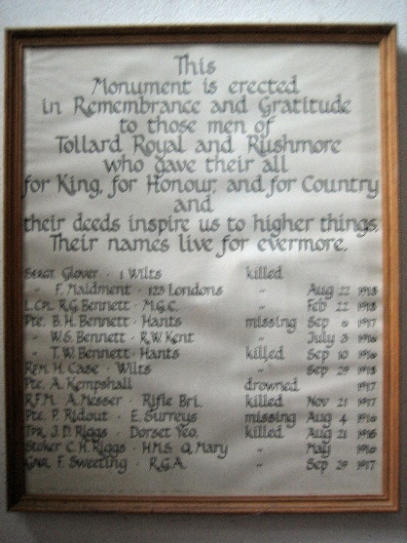 This
Monument is erected
in Remembrance and Gratitude
to those men of
Tollard Royal and Rushmore
who gave their all
for King, for Honour, and for Country
and
their deeds inspire us to higher things.
Their names live for evermore.
Sergt Glover · 1 Wilts killed
" F. Maidment · 123 Londons " Aug 22 1918
L.Cpl R.G. Bennett · M.G.C. " Feb 22 1918
Pte. B.H. Bennett · Hants missing Sep 1917
" W.S. Bennett · R.W. Kent " July 3 1916
" T.W. Bennett · Hants killed Sep 10 1916
H. Case · Wilts " Sep 29 1918
Pte. A. Kempshall drowned 1917
R.F.M. A. Messer · Rifle Bri. killed Nov 21 1917
Pte. P. Ridout · E. Surreys missing Aug 4 1916
Tpr. J.D. Riggs · Dorset Yeo. killed Aug 21 1915
Stoker C.H. Riggs · H.M.S. Q. Mary " May 1916
Gnr. F. Sweeting · R.G.A. " Sep 29 1917